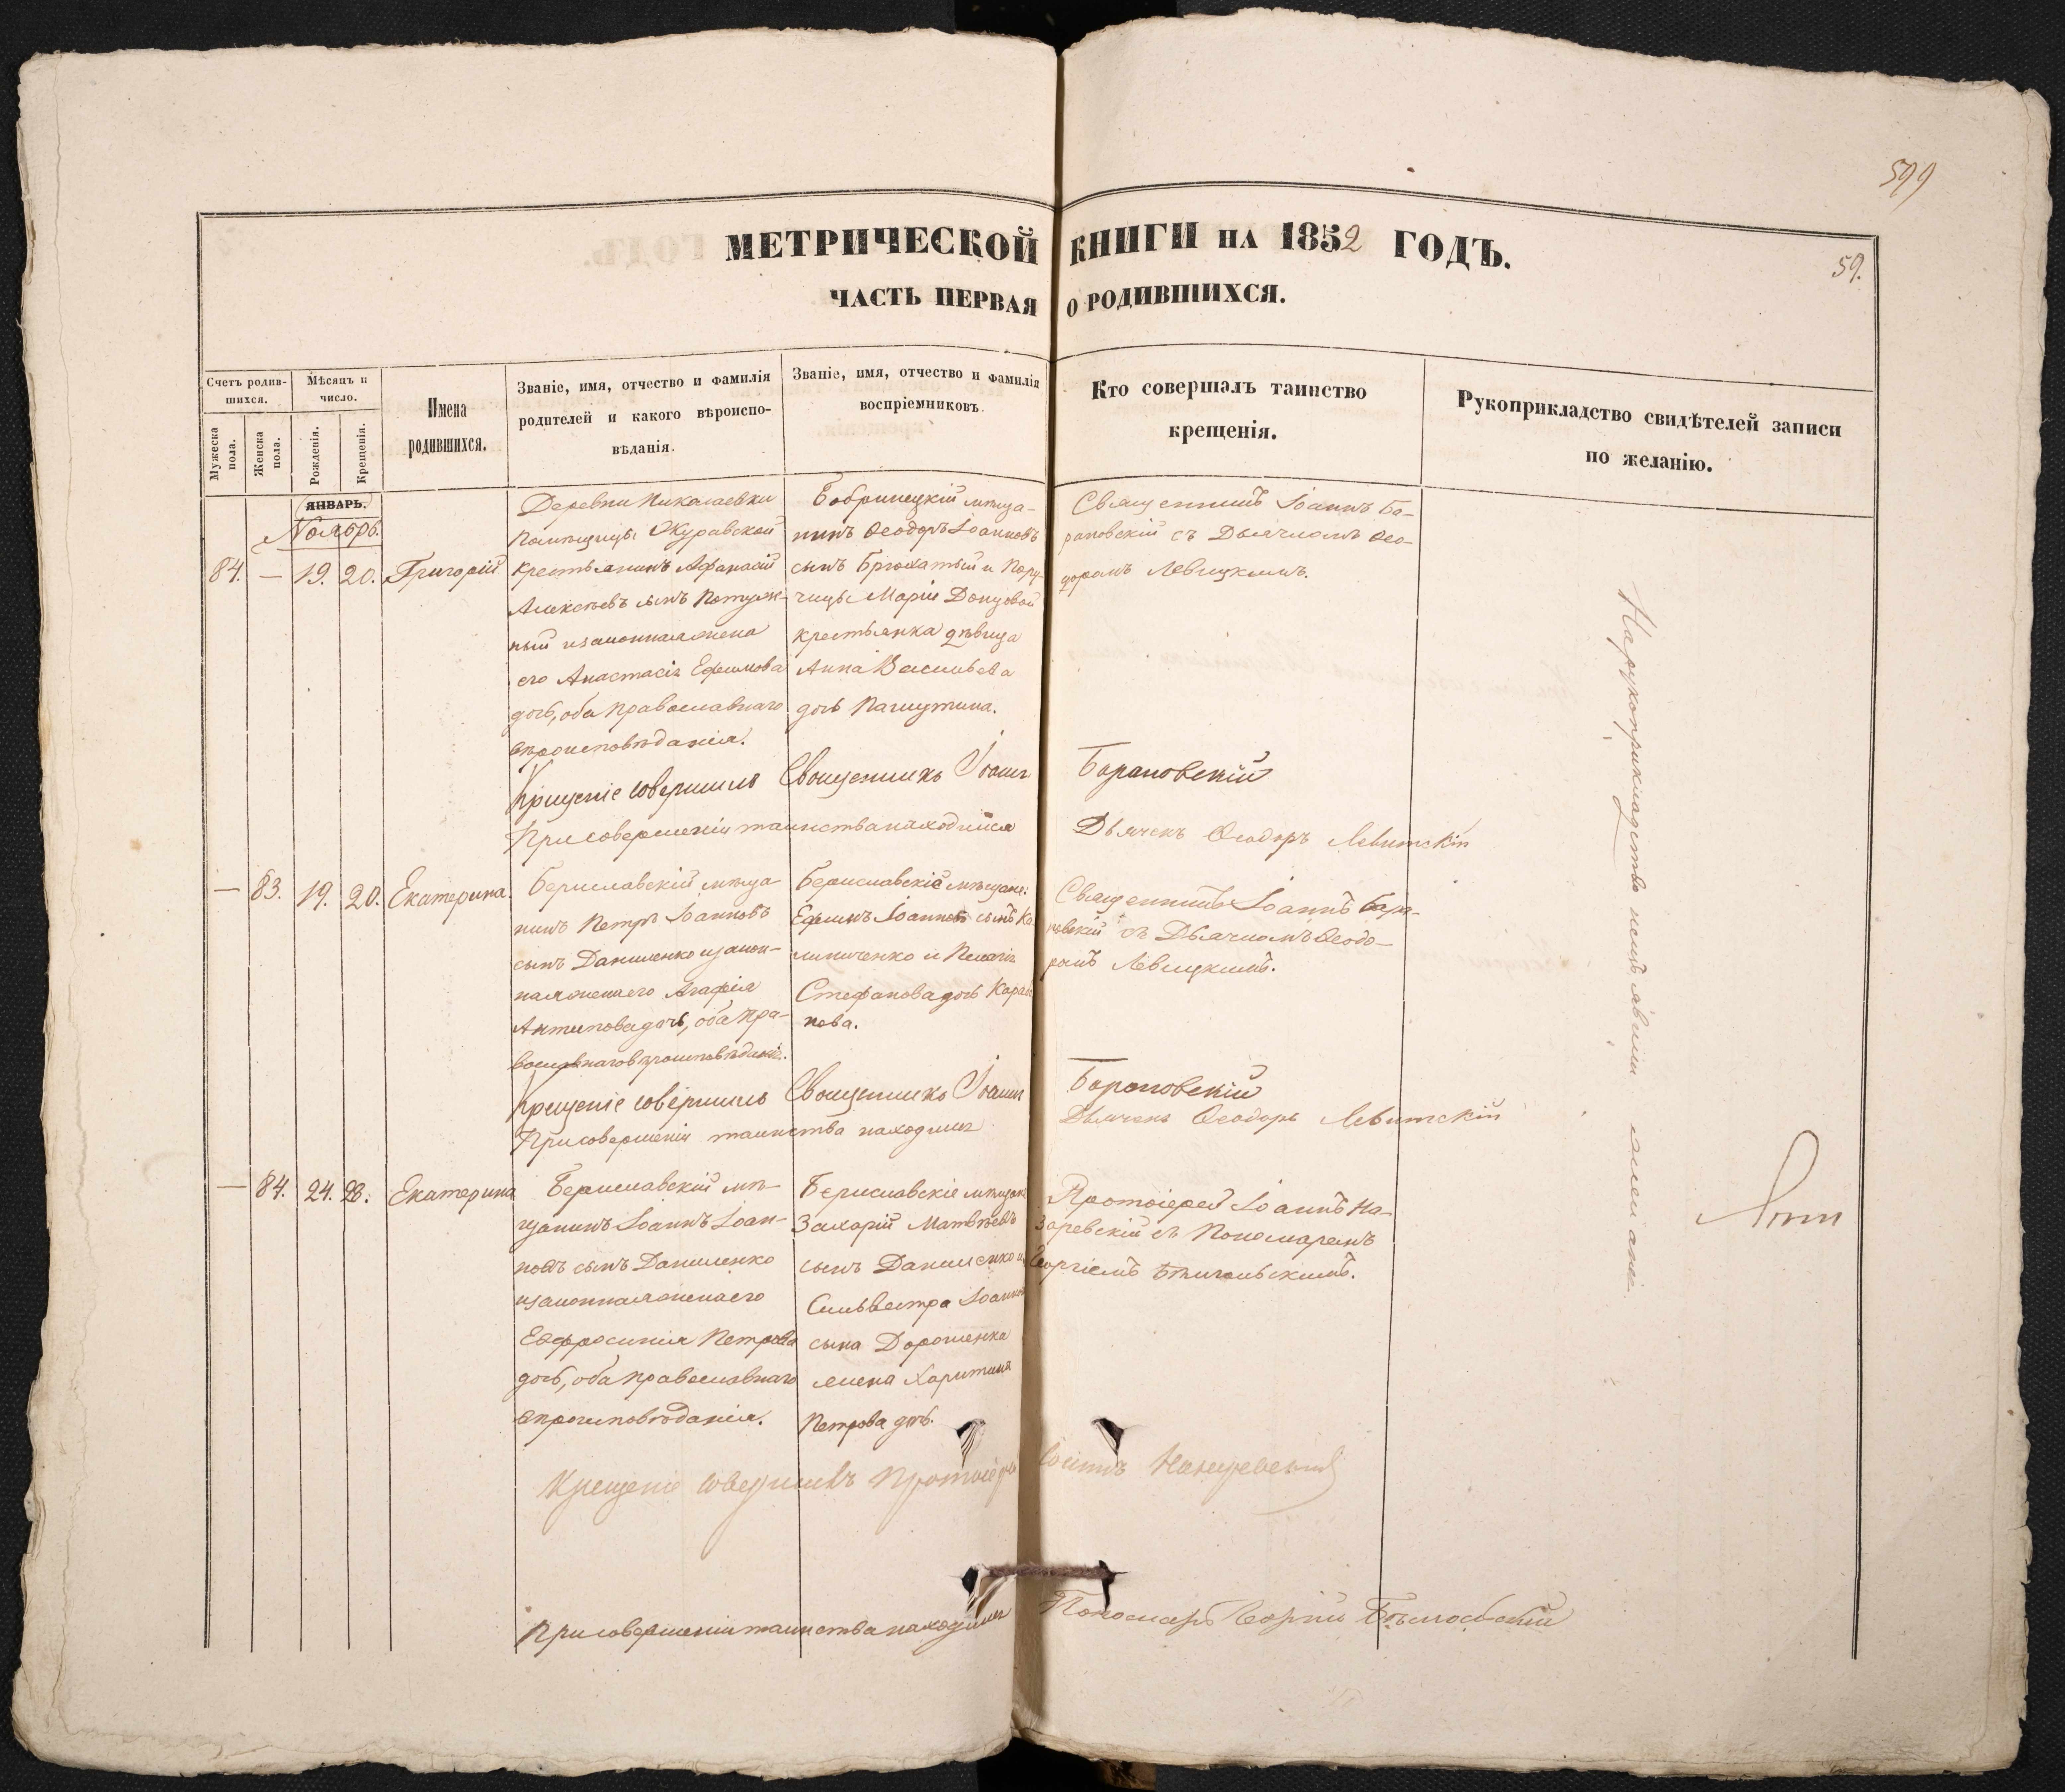 599
МЕТРИЧЕСКОЙ КНИГИ НА 1852 ГОДЪ.
59.
ЧАСТЬ ПЕРВАЯ О РОДИВШИХСЯ.
Счетъ родив-
шихся.
Мужеска пола.
Женска пола.
Мѣсяцъ и
число.
Рожденія.
Крещенія.
Имена
родившихся.
Званіе, имя, отчество и фамилія
родителей и какого вѣроиспо-
вѣданія.
Званіе, имя, отчество и фамилія
воспріемниковъ.
Кто совершалъ таинство
крещенія.
Рукоприкладство свидѣтелей записи
по желанію.
ЯНВАРЬ.
Ноябрь.
84. — 19. 20. Григорій
Деревни Николаевки
Помѣщицы Журавской
крестьянинъ Афанасій
Алексѣевъ сынъ Потуж-
ный и законная жена
его Анастасія Ефимова
дочь, оба православнаго
вѣроисповѣданія.
Бобринецкій мѣща-
нинъ Ѳеодоръ Іоанновъ
сынъ Брюхатый и Пору-
чицы Маріи Донцовой
крестьянка дѣвица
Анна Васильева
дочь Пашутина.
Священникъ Іоаннъ Ба-
рановскій съ Дьячкомъ Ѳео-
доромъ Левицкимъ.
Крещеніе совершилъ Священникъ Іоаннъ Барановскій
При совершеніи таинства находился Дьячекъ Ѳеодоръ Левитскій
— 83. 19. 20. Екатерина.
Бериславскій мѣща-
нинъ Петръ Іоанновъ
сынъ Даниленко и закон-
ная жена его Агафія
Антипова дочь, оба пра-
вославнаго вѣроисповѣданія.
Бериславскіе мѣщане:
Ефимъ Іоанновъ сынъ Ка-
линиченко и Пелагія
Стефанова дочь Карам-
нова.
Священникъ Іоаннъ Бара-
новскій съ Дьячкомъ Ѳеодо-
ромъ Левицкимъ.
Крещеніе совершилъ Священникъ Іоаннъ Барановскій
При совершеніи таинства находился Дьячекъ Ѳеодоръ Левитскій
— 84. 24. 28. Екатерина
Бериславскій мѣ-
щанинъ Іоаннъ Іоан-
новъ сынъ Даниленко
и законная жена его
Евфросинія Петрова
дочь, оба православнаго
вѣроисповѣданія.
Бериславскіе мѣщане
Захарій Матвѣевъ
сынъ Даниленко и
Сильвестра Іоаннова
сына Дорошенка
жена Харитина
Петрова дочь.
Протоіерей Іоаннъ На-
заревскій съ Пономаремъ
Георгіемъ
Крещеніе совершилъ Протоіерей Іоаннъ Назаревскій
При совершеніи таинства находился Пономарь Георгій
На рукоприкладство неизъявили желанія.